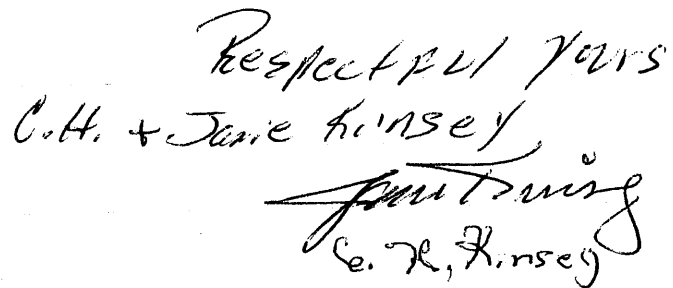 Respectful Yours
C.H. + Janie Kinsey
C. H, Kinsey